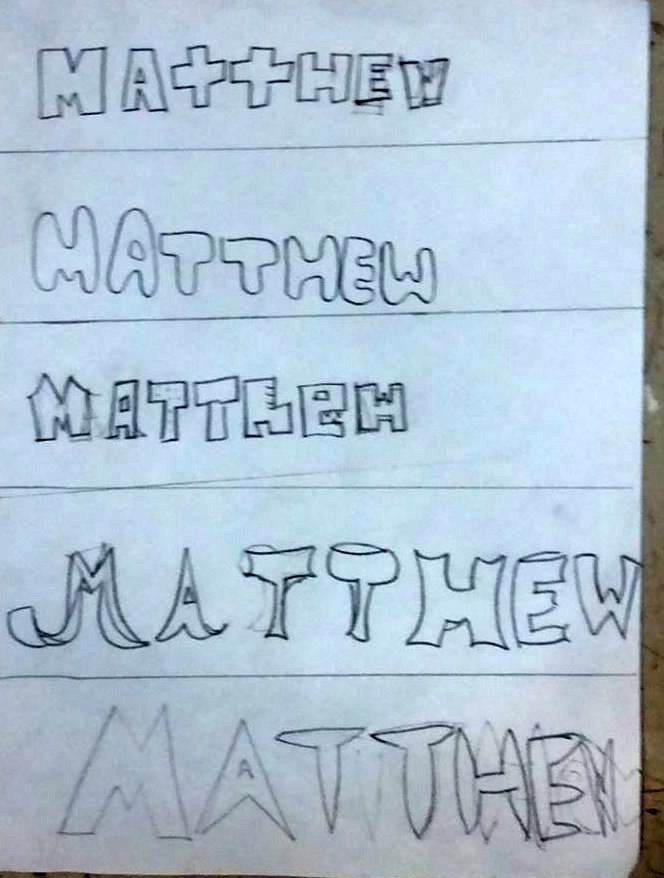 MAttHEW
MATTHEW
MATTheW
MATTHEW
MATTHEW